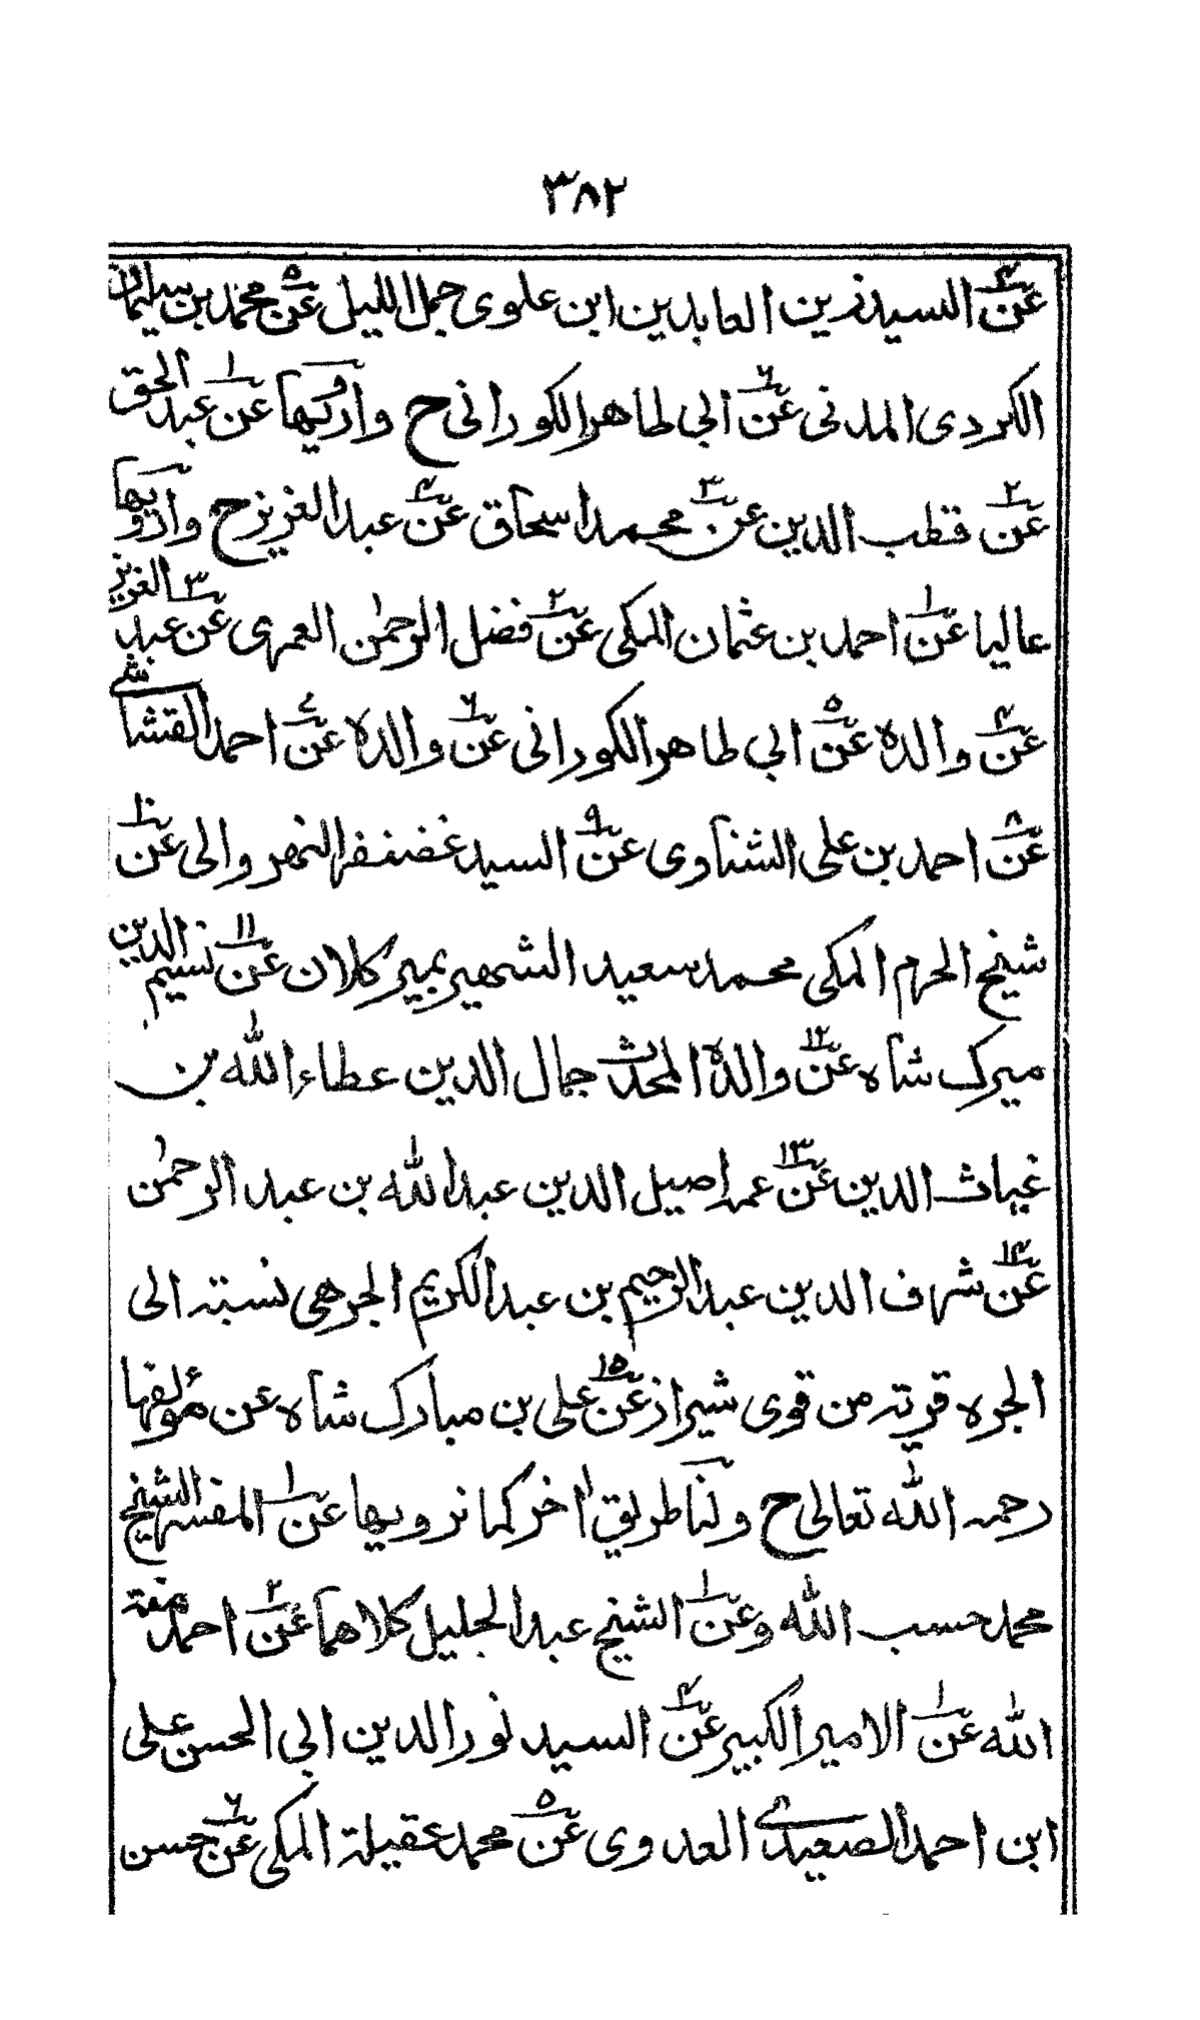 ٣٨٢
عن٤ السيد زين العابدين ابن علوى جمل الليل عن٥ محمد بن سليمان
الكردى المدنى عن٦ ابي طاهر الكورانى ح وارويها عن١ عبد الحق
عن٢ قطب الدين عن٣ محمد اسحاق عن٤ عبد العزيز ح وارويها
عاليا عن١ احمد بن عثمان المكى عن٢ فضل الرحمٰن العمرى عن٣ عبد العزيز
عن٤ والده عن٥ ابي طاهر الكورانى عن٦ والده عن٧ احمد القشاشي
عن٨ احمد بن على الشناوى عن٩ السيد غضنفر النهروالى عن١٠
شيخ الحرم المكى محمد سعيد الشهير بمير كلان عن١١ نسيم الدين
ميرك شاه عن١٢ والده المحدث جمال الدين عطاء الله بن
غياث الدين عن١٣ عمه اصيل الدين عبد الله بن عبد الرحمٰن
عن١٤ شرف الدين عبد الرحيم بن عبد الكريم الجرهى نسبته الى
الجره قرية من قرى شيراز عن١٥ على بن مبارك شاه عن مؤلفها
رحمه الله تعالى ح ولنا طريق اخر كما نرويها عن١ المفسر الشيخ
محمد حسب الله وعن١ الشيخ عبد الجليل كلاهما عن٢ احمد منة
الله عن١ الامير الكبير عن٤ السيد نور الدين ابي الحسن على
ابن احمد الصعيدى العدوى عن٥ محمد عقيلة المكى عن٦ حسن